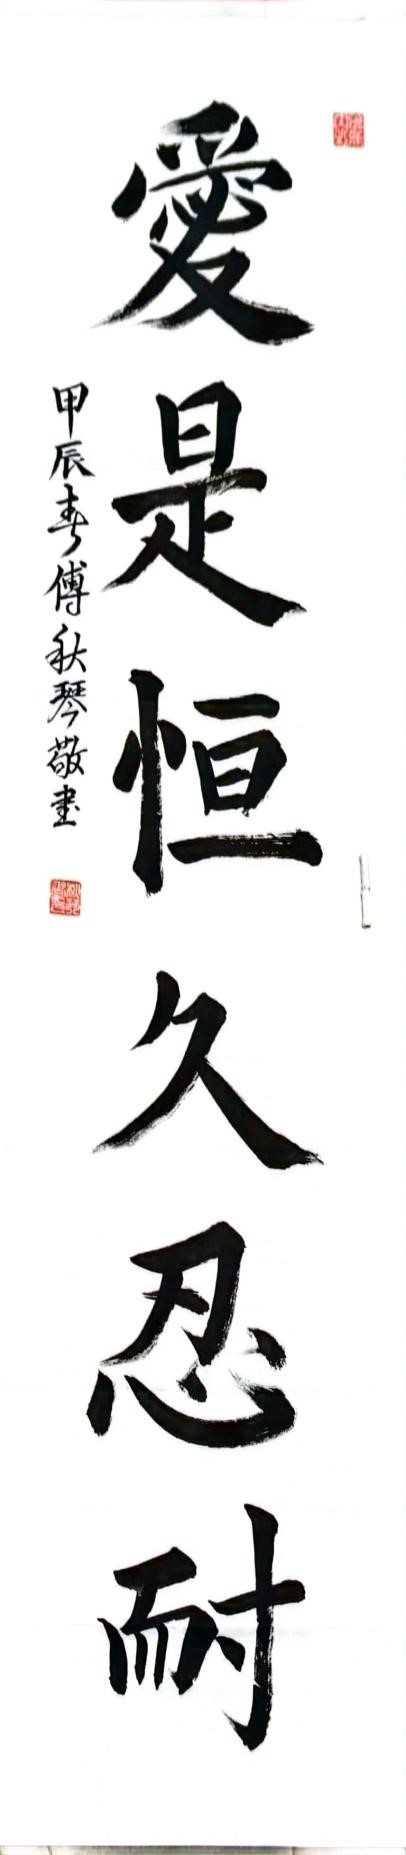 愛是恒久忍耐
甲辰春傅秋琴敬書